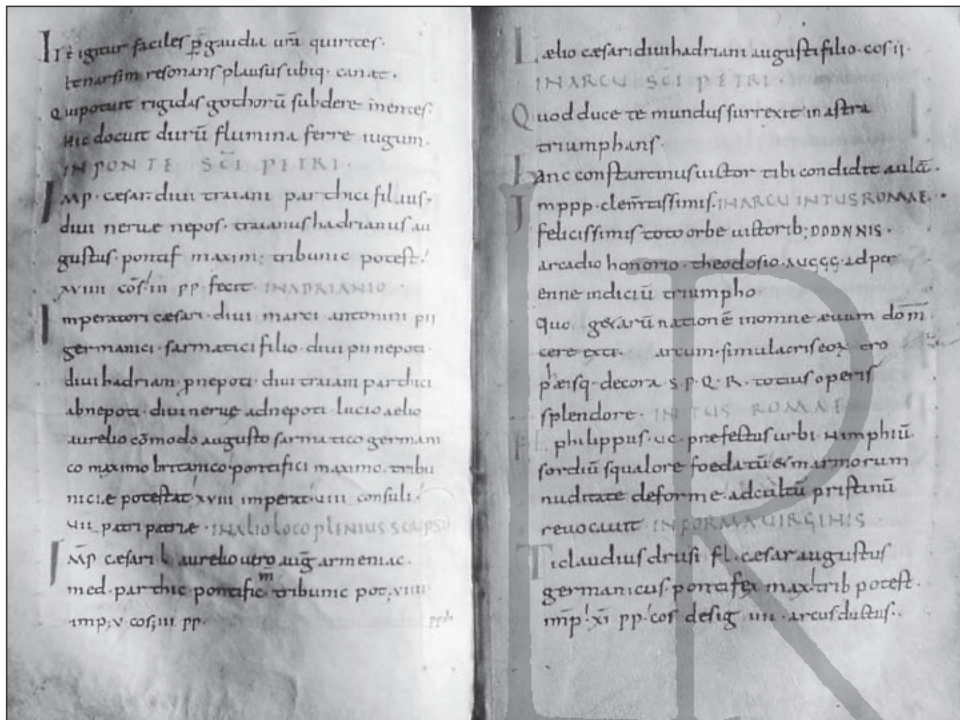 Ite igitur faciles p gaudia ura quirites·
& narsim resonans plausus ubiq· canat·
Qui potuit rigidas gothorū subdere mentes·
Hic docuit durū flumina ferre iugum·
IN PONTE SCI PETRI·
IMP· cæsar· diui traiani parthici filius·
diui neruę nepos· traianus hadrianus au
gustus· pontif maxim; tribunic potest·
xviiii cos iii pp· fecit· IN ADRIANIO·
Imperatori cæsari· diui marci antonini pii
germanici· sarmatici filio· diui pii nepoti·
diui hadriani pnepoti· diui traiani parthici
abnepoti· diui neruę adnepoti· lucio aelio
aurelio cōmodo augusto sarmatico germani
co maximo britanico· pontifici maximo· tribu
niciæ potestat· xviii imperat· viii consuli·
vii patri patriæ· IN ALIO LOCO PLENIUS SCRIPSI
IMP cæsari l aurelio uero aug armeniac·
med· parthic· pontific tribunic pot; viiii
imp; v cos; iii pp·
Lælio cæsari diui hadriani augusti filio· cos ii·
IN ARCU SCI PETRI·
Quod duce te mundus surrexit in astra
triumphans·
Hanc constantinus uictor tibi condidit aulā·
Imppp· clemtissimis· IN ARCU INTUS ROMAE·
felicissimis toto orbe uictorib; DDDNNIS·
arcadio honorio· theodosio· AUGGG· ad per
enne indiciū triumpho
quo getarū nationē in omne æuum dom
cere exti arcum· simulacris eox tro
phæisq· decora· S·P·Q·R· totius operis
splendore· INTUS ROMAE
FL philippus· uc· prefectus urbi nimphiū
sordiū squalore foedatū & marmorum
nuditate deforme· ad cultū pristinū
reuocauit· IN FORMA UIRGINIS
Ti claudius drusi fl· cæsar augustus
germanicus· pontifex max· trib potest·
imp· xi pp· cos desig iiii· arcus ductus·
LR